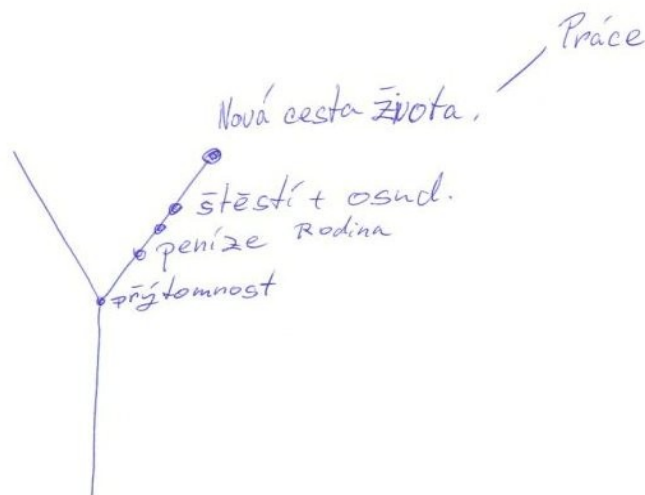 Práce
Nová cesta života.
štěstí + osud.
peníze Rodina
přýtomnost